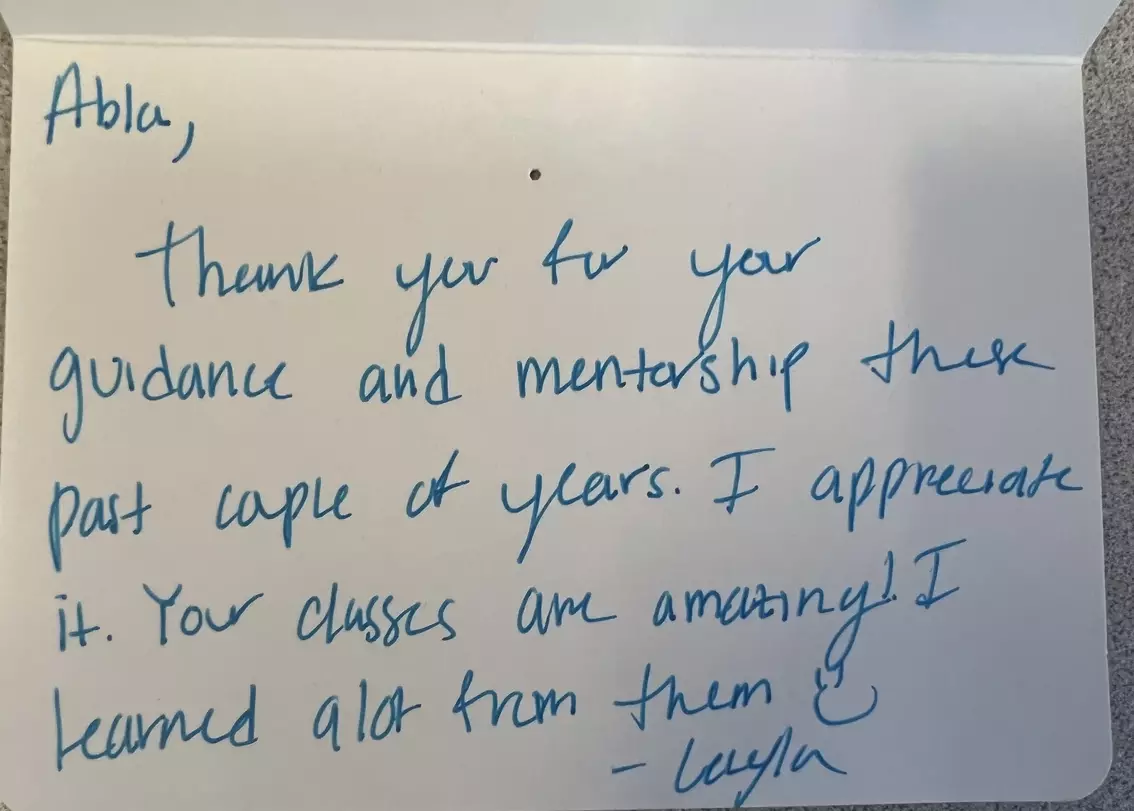 Abla,
Thank you for your
guidance and mentorship these
past couple of years. I appreciate
it. Your classes are amazing! I
learned alot from them
- Layla